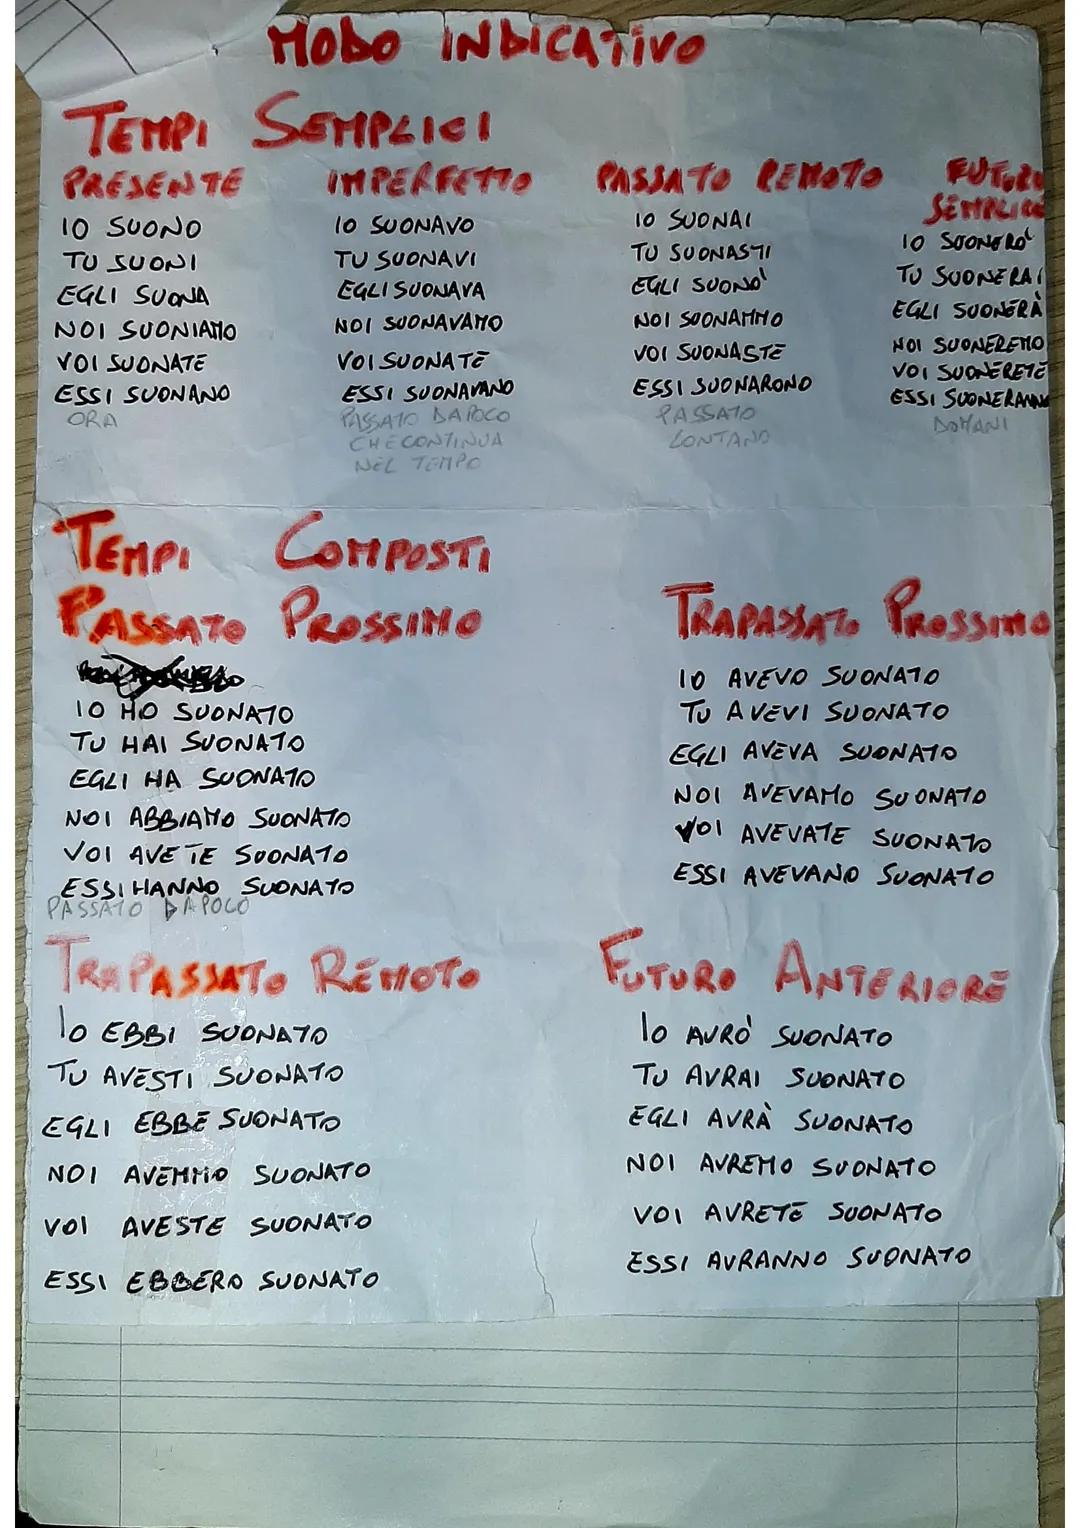 MODO INDICATIVO
TEMPI SEMPLICI
PRESENTE
IO SUONO
TU SUONI
EGLI SUONA
NOI SUONIAMO
VOI SUONATE
ESSI SUONANO
ORA
IMPERFETTO
IO SUONAVO
TU SUONAVI
EGLI SUONAVA
NOI SUONAVAMO
VOI SUONATE
ESSI SUONAVANO
PASSATO DA POCO
CHE CONTINUA
NEL TEMPO
PASSATO REMOTO
IO SUONAI
TU SUONASTI
EGLI SUONO'
NOI SUONAMMO
VOI SUONASTE
ESSI SUONARONO
PASSATO
LONTANO
FUTURO
SEMPLICE
IO SUONERO'
TU SUONERAI
EGLI SUONERÀ
NOI SUONEREMO
VOI SUONERETE
ESSI SUONERANNO
DOMANI
TEMPI COMPOSTI
PASSATO PROSSIMO
IO HO SUONATO
TU HAI SUONATO
EGLI HA SUONATO
NOI ABBIAMO SUONATO
VOI AVETE SUONATO
ESSI HANNO SUONATO
PASSATO DA POCO
TRAPASSATO PROSSIMO
IO AVEVO SUONATO
TU AVEVI SUONATO
EGLI AVEVA SUONATO
NOI AVEVAMO SUONATO
VOI AVEVATE SUONATO
ESSI AVEVANO SUONATO
TRAPASSATO REMOTO
IO EBBI SUONATO
TU AVESTI SUONATO
EGLI EBBE SUONATO
NOI AVEMMO SUONATO
VOI AVESTE SUONATO
ESSI EBBERO SUONATO
FUTURO ANTERIORE
IO AVRO' SUONATO
TU AVRAI SUONATO
EGLI AVRÀ SUONATO
NOI AVREMO SUONATO
VOI AVRETE SUONATO
ESSI AVRANNO SUONATO